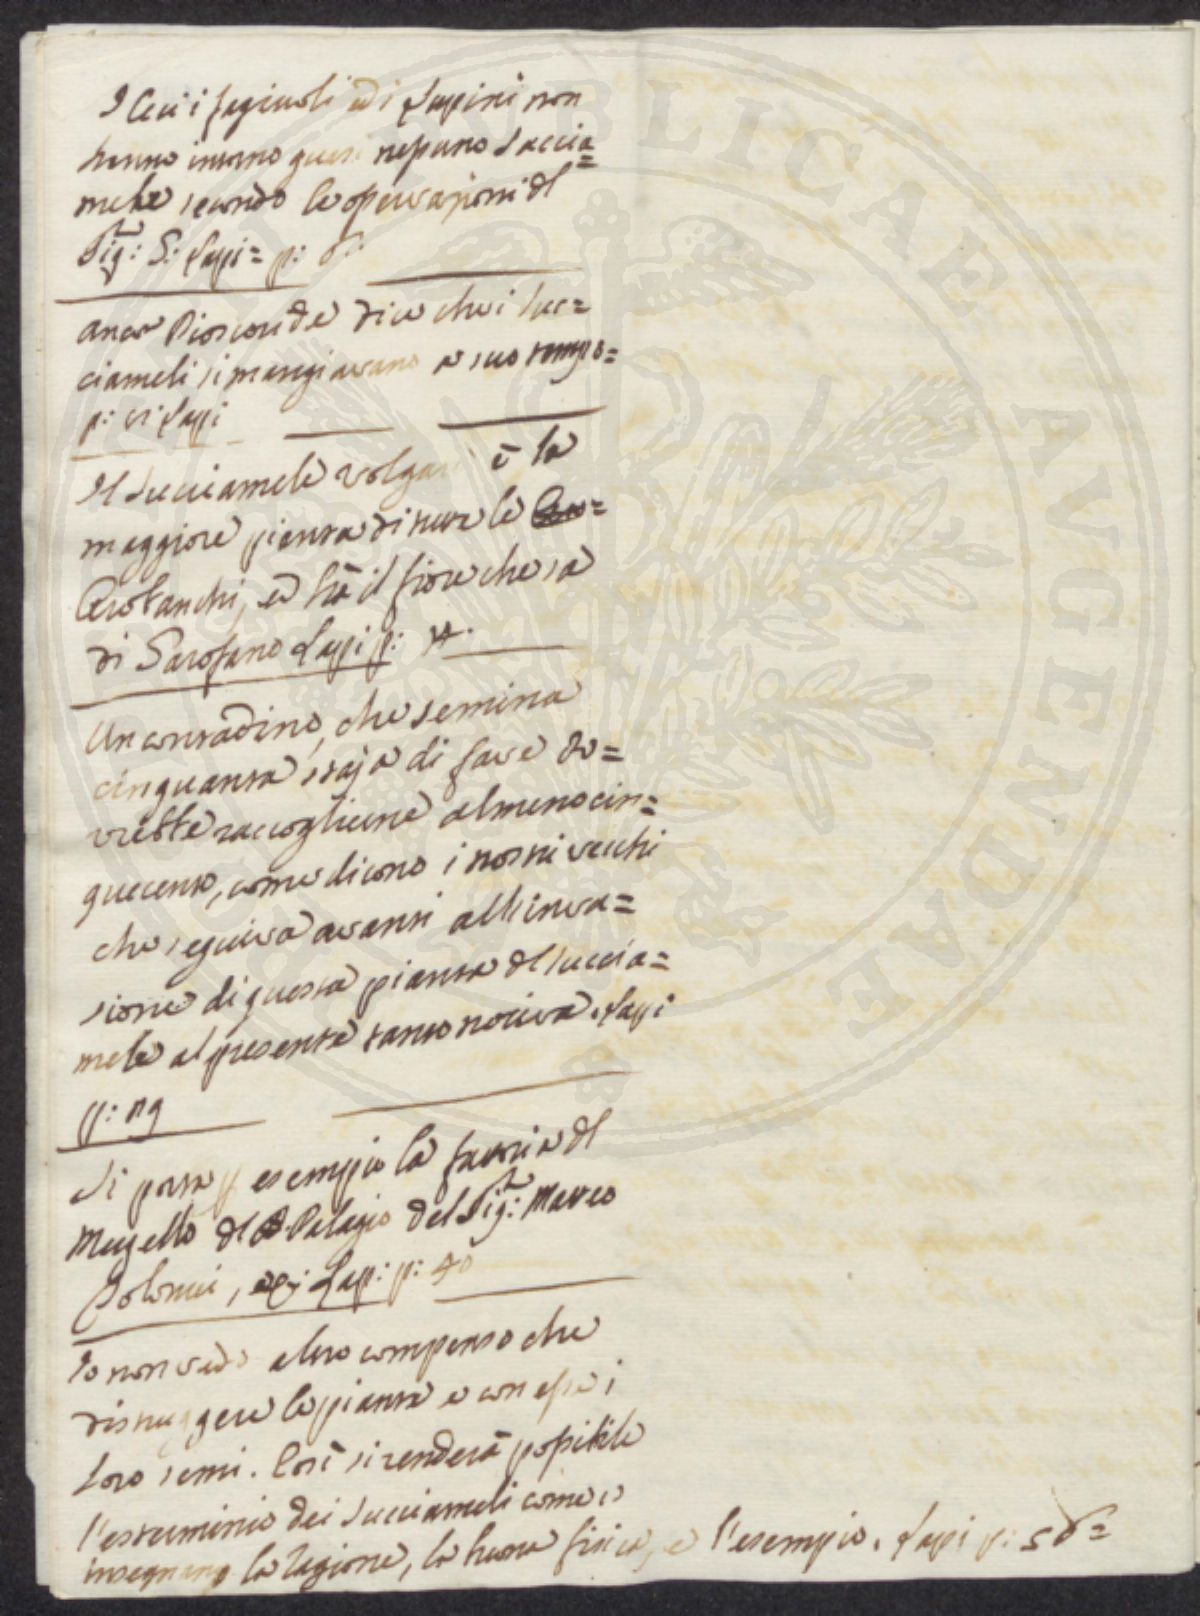 I Ceci i fagiuoli ed i Lupini non
hanno intorno quasi nessuno Succia=
mele secondo le osservazioni del
Sig:r G: Lapi= p: 6:
anco Dioscoride dice che i Suc=
ciameli si mangiavano a suo tempo=
p: Lapi
Il Succiamele volgare è la
maggiore pianta di tutte le
Orobanchi, ed hà il fiore che sà
di Garofano Lapi p: 14.
Un contadino, che semina
cinquanta staja di fave do=
vrebbe raccogliene almeno cin=
quecento, come dicono i nostri vecchi
che seguiva avanti all'inva=
sione di questa pianta del Succia=
mele al presente tanto nociva. Lapi
p: 29
Si porta p esempio la fattoria del
Mugello del Palagio del Sig:r Marco
Lap: p: 40
Io non vedo altro compenso che
distruggere le piante e con esse i
loro semi. Così si renderà possibile
l'esterminio dei Succiameli come ci
insegnano la ragione, la buona fisica, e l'esempio. Lapi p: 56=
PUBLICAE AUGENDAE